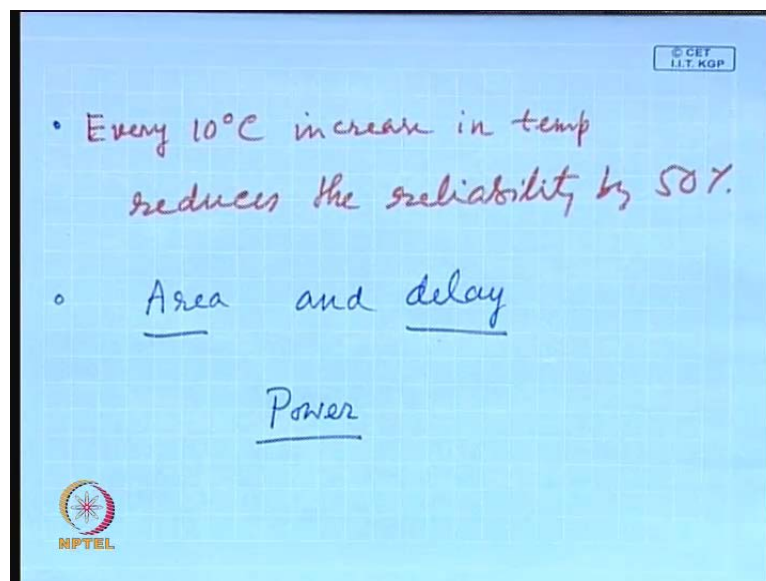 © CET
I.I.T. KGP
• Every 10°C increase in temp
reduces the reliability by 50%.
• Area and delay
Power
NPTEL